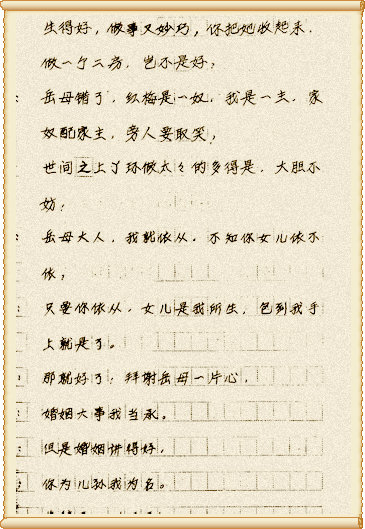 生得好，做事又妙巧，你把她收起来，
做一个二房，岂不是好？
岳母错了，红梅是一奴，我是一主，家
奴配家主，旁人要取笑；
世间之上丫环做太々的多得是，大胆不
妨！
岳母大人，我就依从，不知你女儿依不
依；
只要你依从，女儿是我所生，包到我手
上就是了。
那就好了，拜谢岳母一片心，
婚姻大事我当承。
但是婚姻讲得好，
你为儿孙我为名。